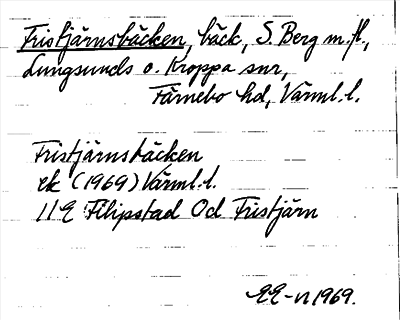 Fristjärnsbäcken, bäck, S. Berg m.fl.,
Lungsunds o. Kroppa snr,
Färnebo hd, Värml. l.
Fristjärnsbäcken
ek (1969) Värml. l.
11E Filipstad Od Fristjärn
EE-n 1969.